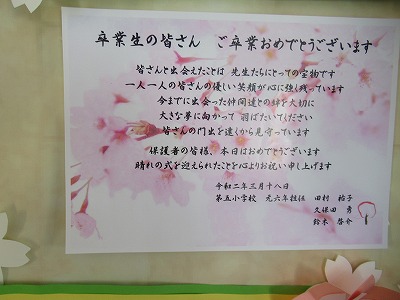 卒業生の皆さん　ご卒業おめでとうございます
皆さんと出会えたことは 先生たちにとっての宝物です
一人一人の皆さんの優しい笑顔が心に強く残っています
今までに出会った仲間達との絆を大切に
大きな夢に向かって 羽ばたいてください
皆さんの門出を遠くから見守っています
保護者の皆様、本日はおめでとうございます
晴れの式を迎えられたことを心よりお祝い申し上げます
令和二年三月十八日
第五小学校　元六年担任　田村　裕子
久保田　勇
鈴木　啓介